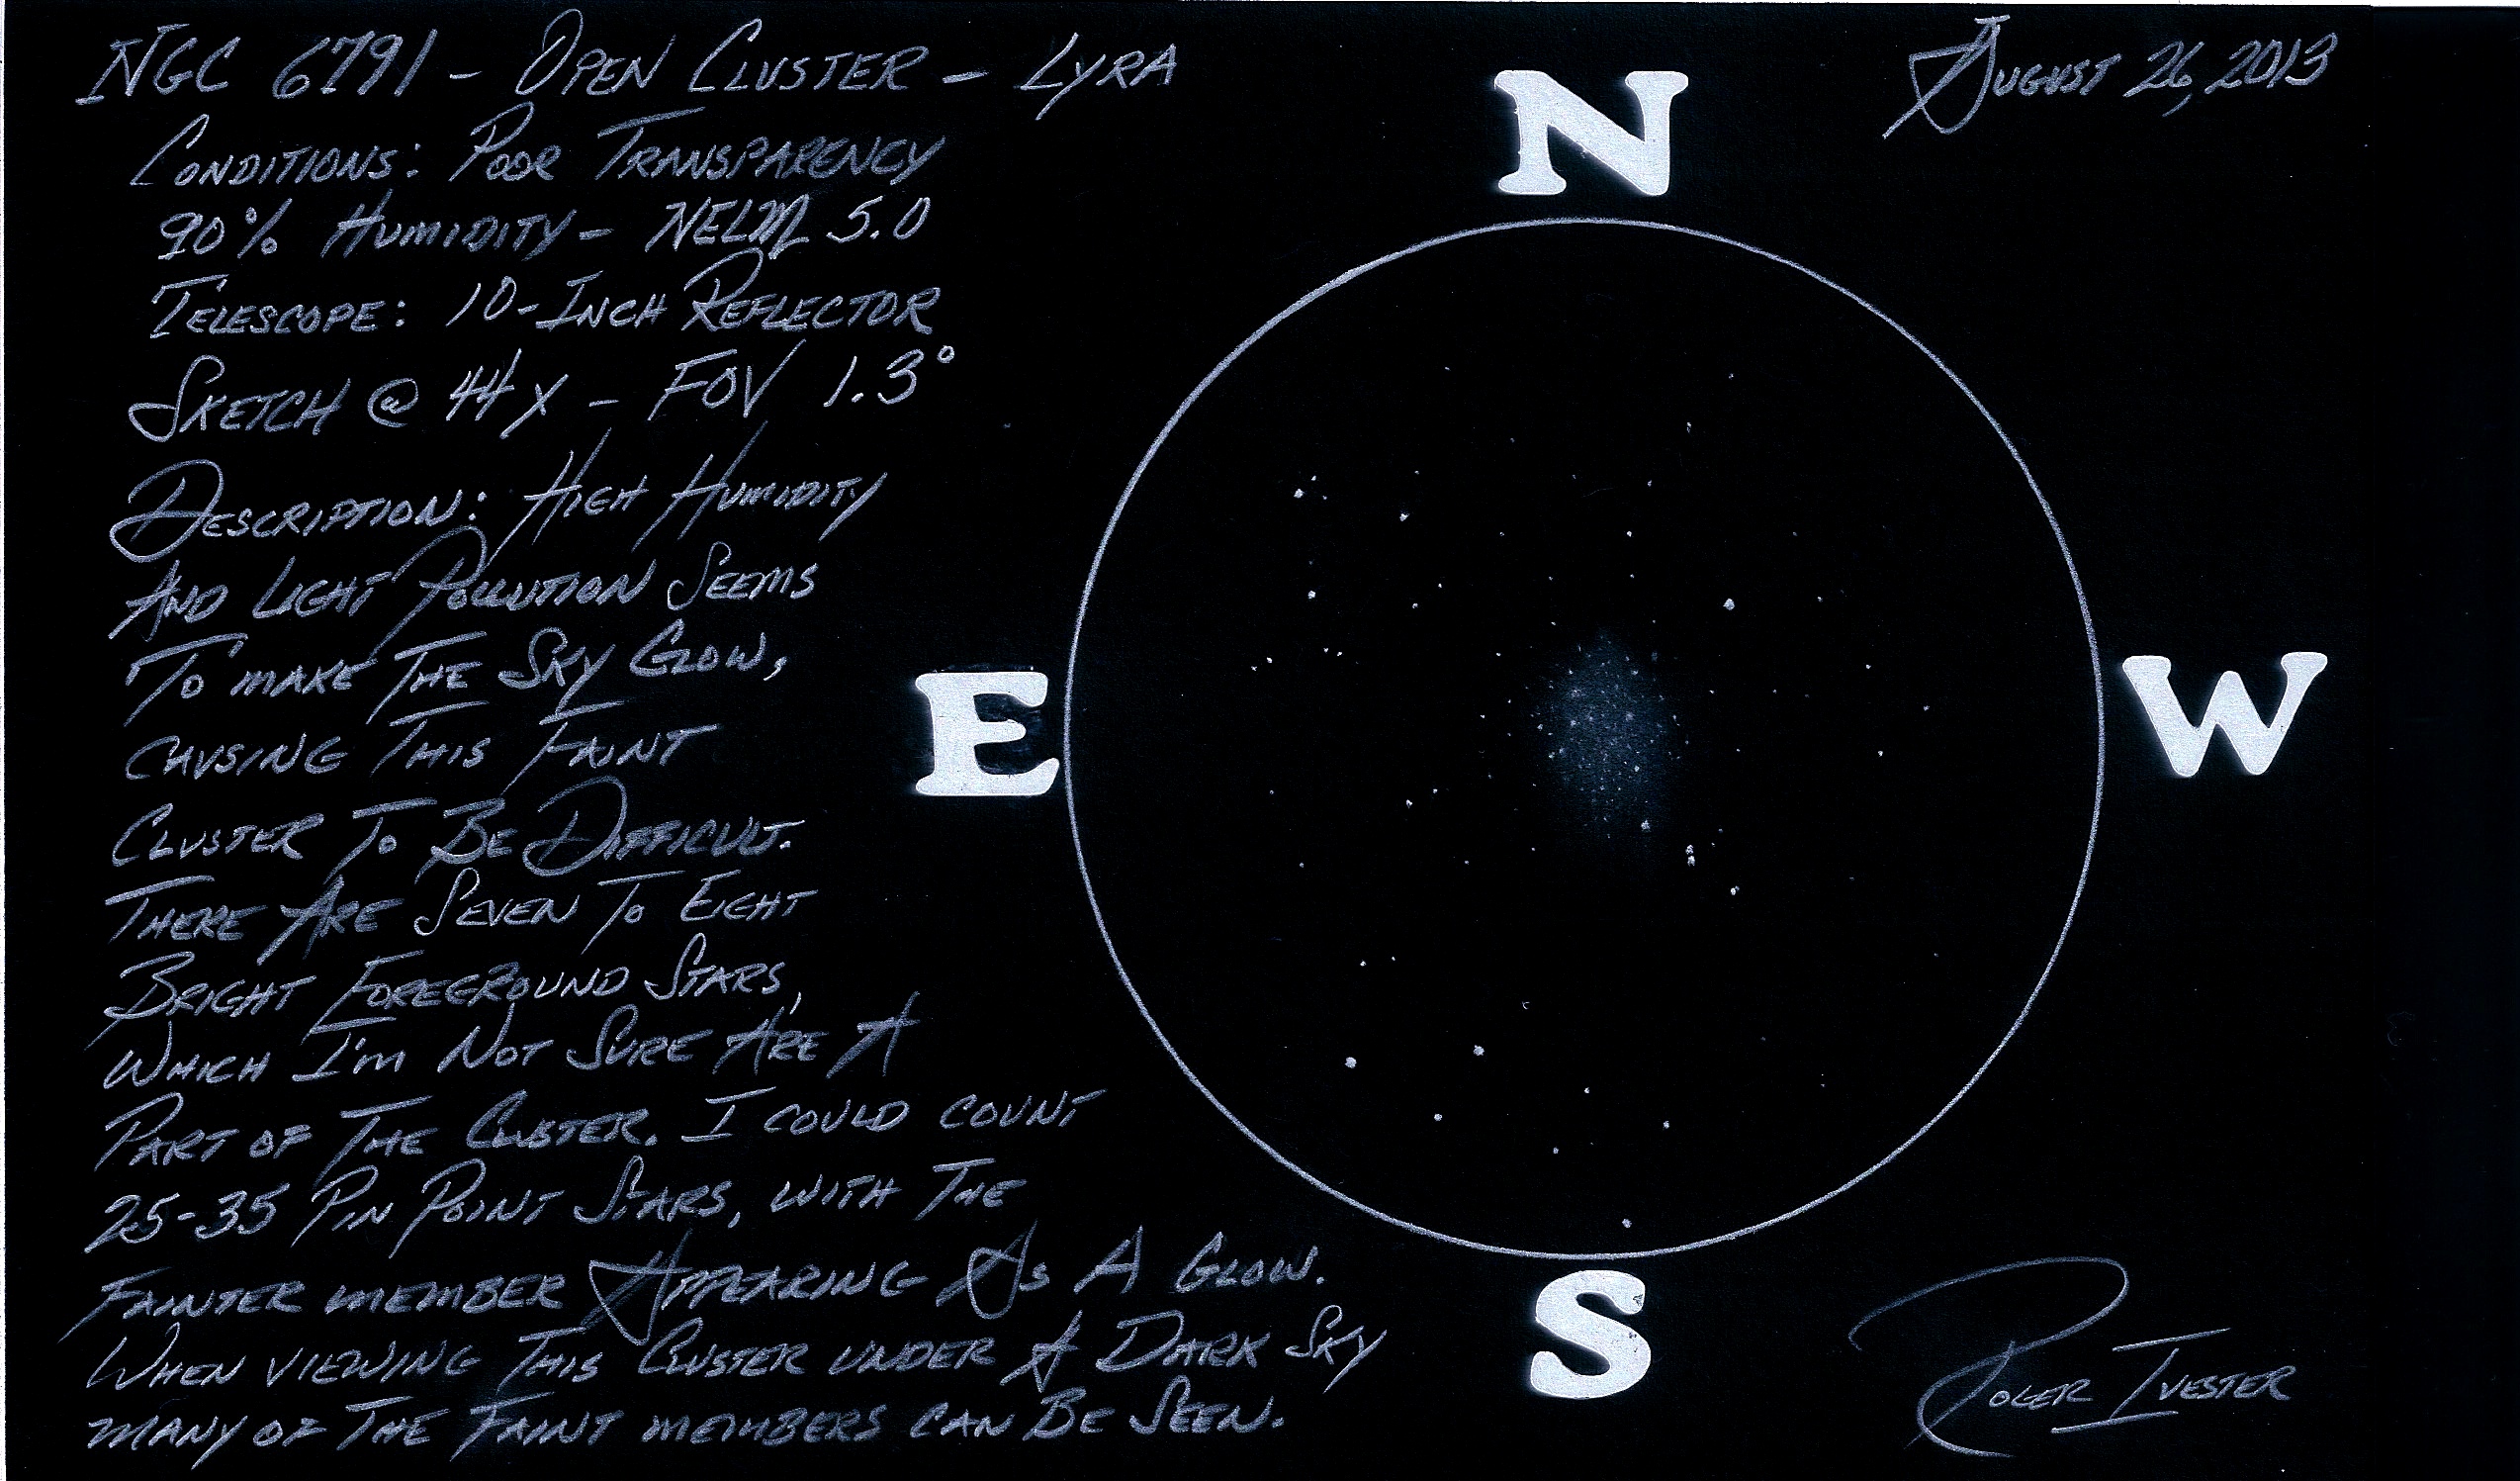 NGC 6791 - OPEN CLUSTER - LYRA
AUGUST 26, 2013
CONDITIONS: POOR TRANSPARENCY
90% HUMIDITY - NELM 5.0
TELESCOPE: 10-INCH REFLECTOR
SKETCH @ 44X - FOV 1.3°
DESCRIPTION: HIGH HUMIDITY
AND LIGHT POLLUTION SEEMS
TO MAKE THE SKY GLOW,
CAUSING THIS FAINT
CLUSTER TO BE DIFFICULT.
THERE ARE SEVEN TO EIGHT
BRIGHT FOREGROUND STARS,
WHICH I'M NOT SURE ARE A
PART OF THE CLUSTER. I COULD COUNT
25-35 PIN POINT STARS, WITH THE
FAINTER MEMBER APPEARING AS A GLOW.
WHEN VIEWING THIS CLUSTER UNDER A DARK SKY
MANY OF THE FAINT MEMBERS CAN BE SEEN.
N
E
W
S
ROGER IVESTER